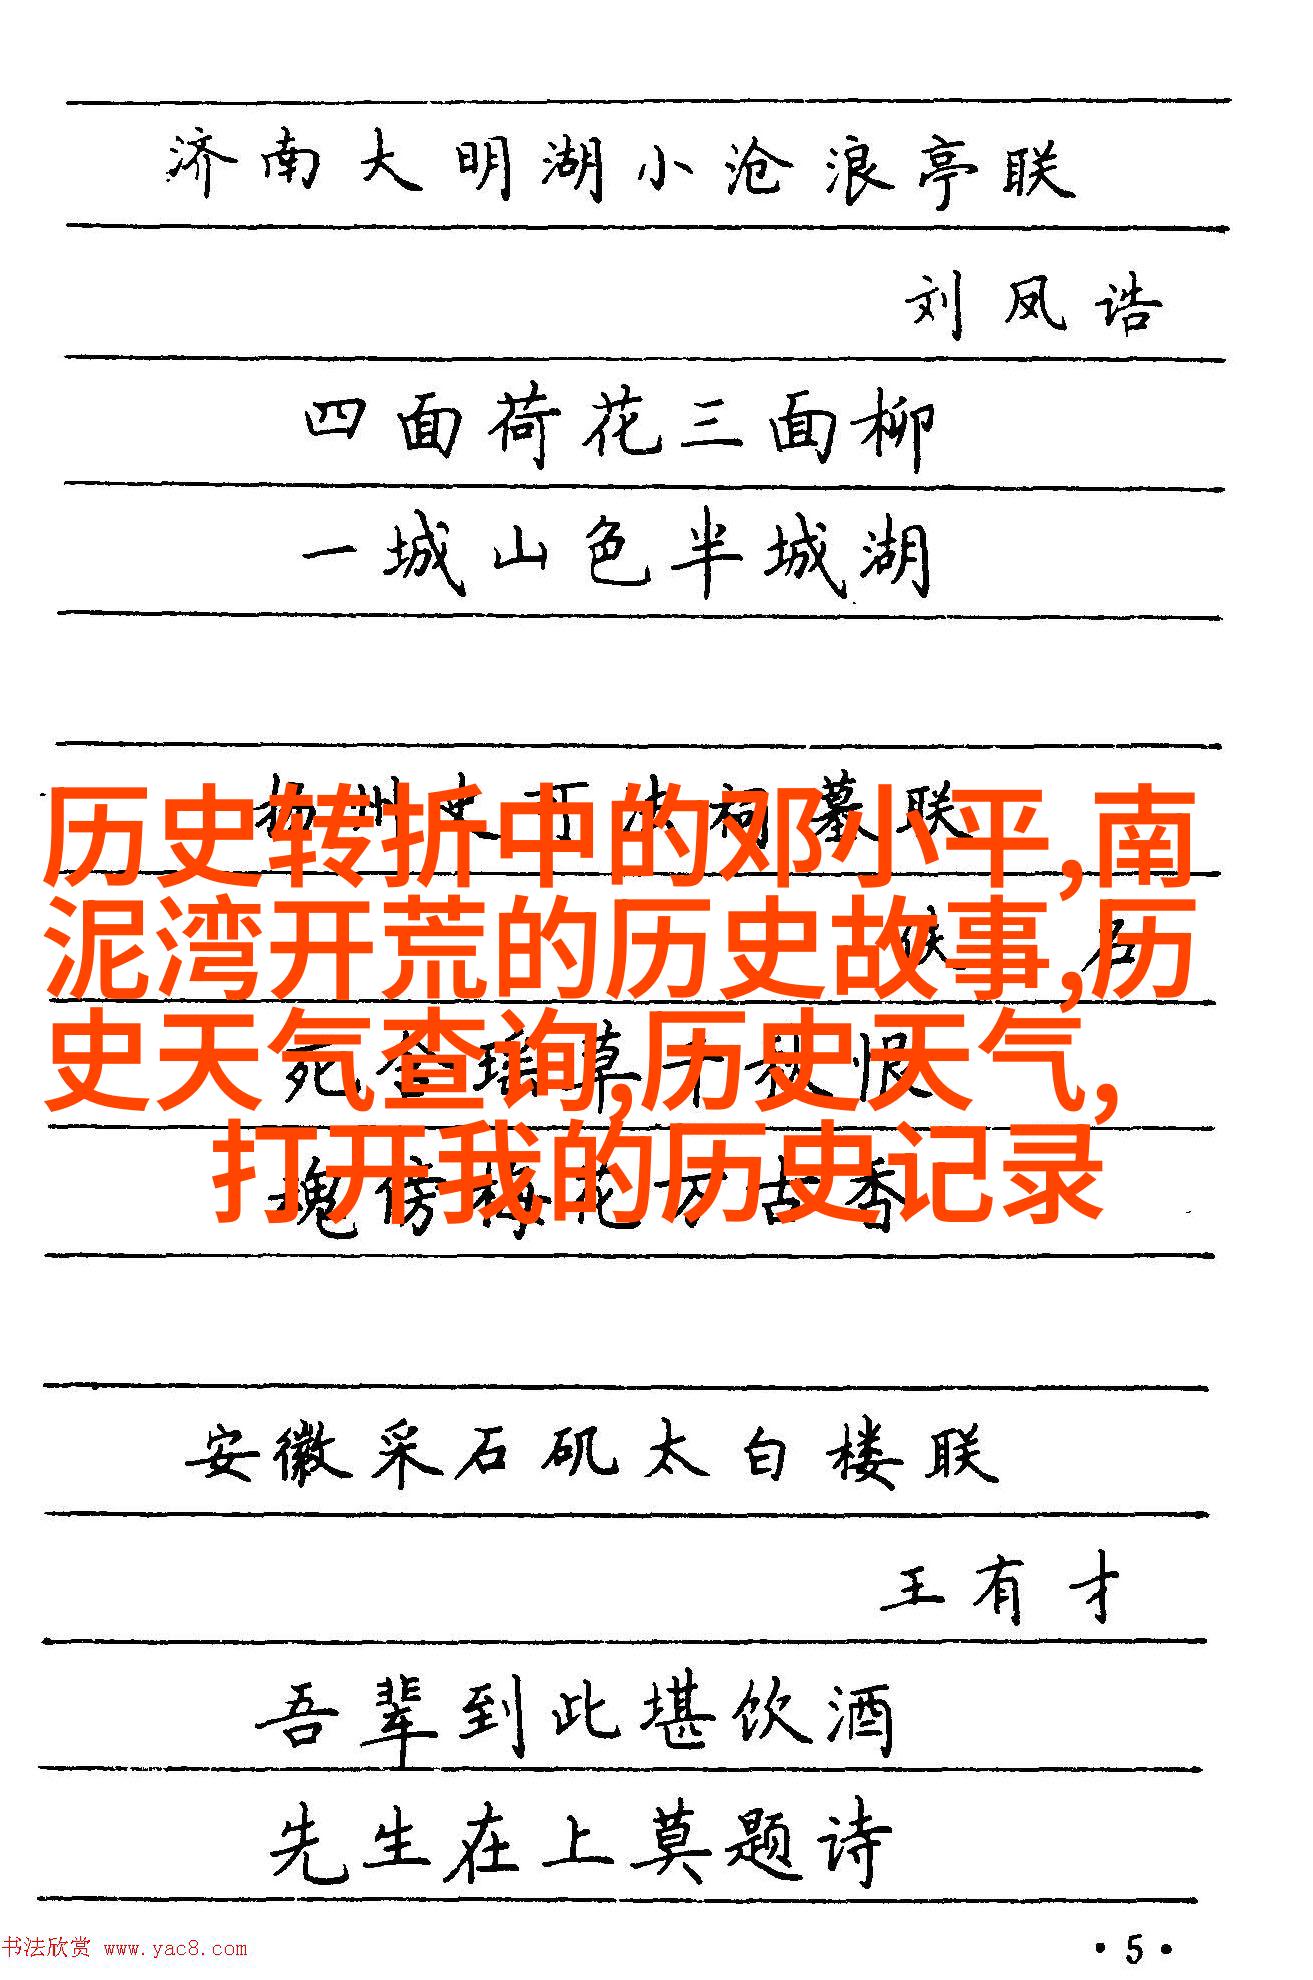 济南大明湖小沧浪亭联
刘凤诰
四面荷花三面柳
一城山色半城湖
扬州史可法祠墓联
历史转折中的邓小平,南
佚 名
泥湾开荒的历史故事,历
史天气查询,历史天气,
打开我的历史记录
魂傍梅花万古香
安徽采石矶太白楼联
王有才
吾辈到此堪饮酒
先生在上莫题诗
书法欣赏 www.yac8.com
·5·